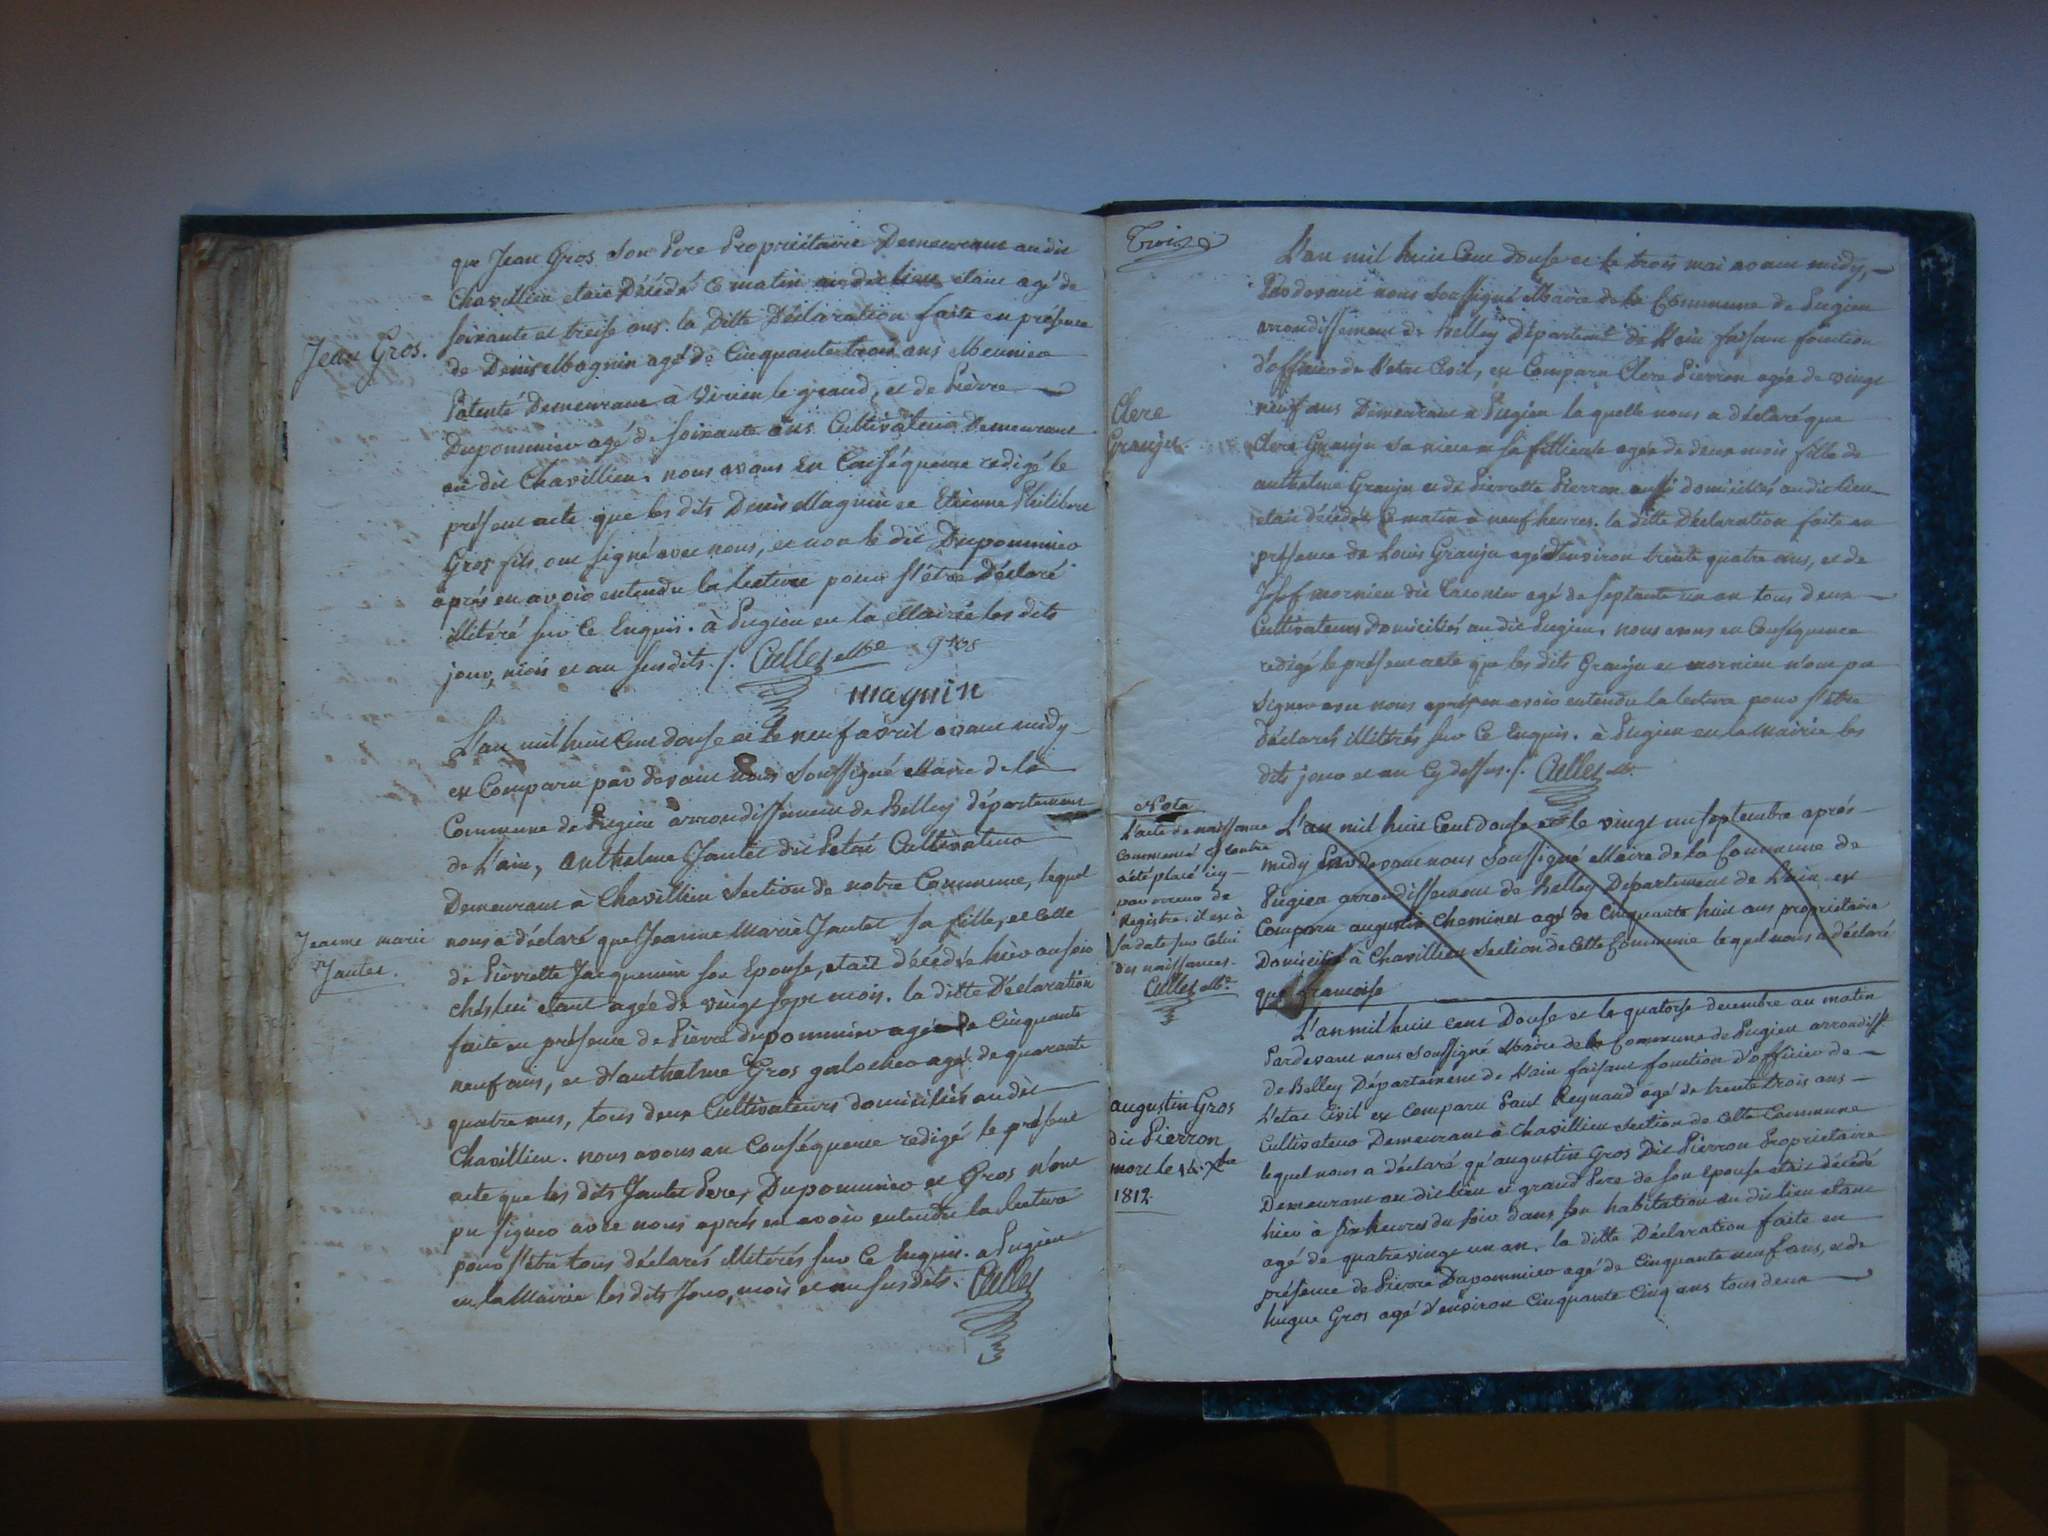 que Jean Gros son Pere Propriétaire Demeurant au dit
Chavillieu etait Décédé ce matin au dit lieu etant agé de
soixante et treise ans. la ditte Déclaration faite en présence
Jean Gros.
de Denis Magnin agé de Cinquante trois ans Meunier
Patenté Demeurant à Virieu le grand, et de Pierre
Dupommier agé de soixante ans Cultivateur Demeurant
au dit Chavillieu. nous avons en Conséquence redigé le
présent acte que les dits Denis Magnin et Etienne Philibert
Gros fils ont signé avec nous, et non le dit Dupommier
après en avoir entendu la lecture pour s'être Déclaré
illitéré sur ce Enquis. à Pugieu en la Mairie les dits
jour, mois et an susdits ./. Cullet Mre gros
magnin
L'an mil huit Cent douse et le neuf avril avant midy
est Comparu par devant nous Soussigné Maire de la
Commune de Pugieu arrondissement de Belley département
de L'ain, Anthelme Jantet dit Cultivateur
Demeurant à Chavillieu Section de notre Commune, lequel
Jeanne marie
Jantet.
nous a déclaré que Jeanne Marie Jantet sa fille, et Celle
de Pierrette Jacquemin son Epouse, etait décédée hier au soir
chés lui etant agée de vingt sept mois. la ditte Déclaration
faite en présence de Pierre Dupommier agé de Cinquante
neuf ans, et d'anthelme Gros galocher agé de quarante
quatre ans, tous deux Cultivateurs domiciliés au dit
Chavillieu. nous avons en Conséquence redigé le présent
acte que les dits Jantet Pere, Dupommier et Gros n'ont
pu signer avec nous après en avoir entendu la lecture
pour s'être tous déclarés illiterés sur ce Enquis. a Pugieu
en la Mairie les dits Jour, mois et an susdits. Cullet
Trois
L'an mil huit Cent douse et le trois mai avant midy,
Pardevant nous Soussigné Maire de la Commune de Pugieu
arrondissement de Belley Départemt de L'ain faisant fonction
d'officier de l'etat Civil, est Comparu Clere Pierron agée de vingt
Clere
Granju.
neuf ans Demeurant à Pugieu la quelle nous a déclaré que
Clere Granju sa niece et sa fillieule agée de deux mois fille de
anthelme Granju et de Pierrette Pierron aussi domiciliés audit lieu
etait décédée ce matin à neuf heures. la ditte Déclaration faite en
présence de Louis Granju agé d'environ trente quatre ans, et de
Josef mornieu dit agé de septante un an tous deux
Cultivateurs domiciliés au dit Pugieu. nous avons en Conséquence
redigé le présent acte que les dits Granju et mornieu n'ont pu
signer avec nous après en avoir entendu la lecture pour s'être
Déclarés illiterés sur ce Enquis. à Pugieu en la Mairie les
dits jour et an Cy dessus ./. Cullet M.
Nota
L'acte de naissance
commencé cy contre
a été placé icy
par erreur de
Registre. il est à
sa date sur celui
des naissances.
Cullet Mre
L'an mil huit Cent douse et le vingt un septembre après
midy Pardevant nous Soussigné Maire de la Commune de
Pugieu arrondissement de Belley Département de L'ain est
Comparu augustin Cheminet agé de Cinquante huit ans propriétaire
Domicilié à Chavillieu Section de Cette Commune lequel nous a déclaré
que francoise
L'an mil huit cent Douse et le quatorse decembre au matin
Pardevant nous Soussigné Maire de la Commune de Pugieu arrondisst
de Belley Département de L'ain faisant fonction d'officier de
L'etat Civil est Comparu Paul Reynaud agé de trente trois ans
augustin Gros
dit Pierron
mort le 14. Xbre
1812.
Cultivateur Demeurant à Chavillieu Section de Cette Commune
lequel nous a déclaré qu'augustin Gros Dit Pierron Propriétaire
Demeurant au dit lieu et grand Pere de son epouse etait décédé
hier à six heures du soir dans son habitation au dit lieu etant
agé de quatre vingt un an. la ditte Déclaration faite en
présence de Pierre Dupommier agé de Cinquante neuf ans, et de
hugue Gros agé d'environ Cinquante Cinq ans tous deux